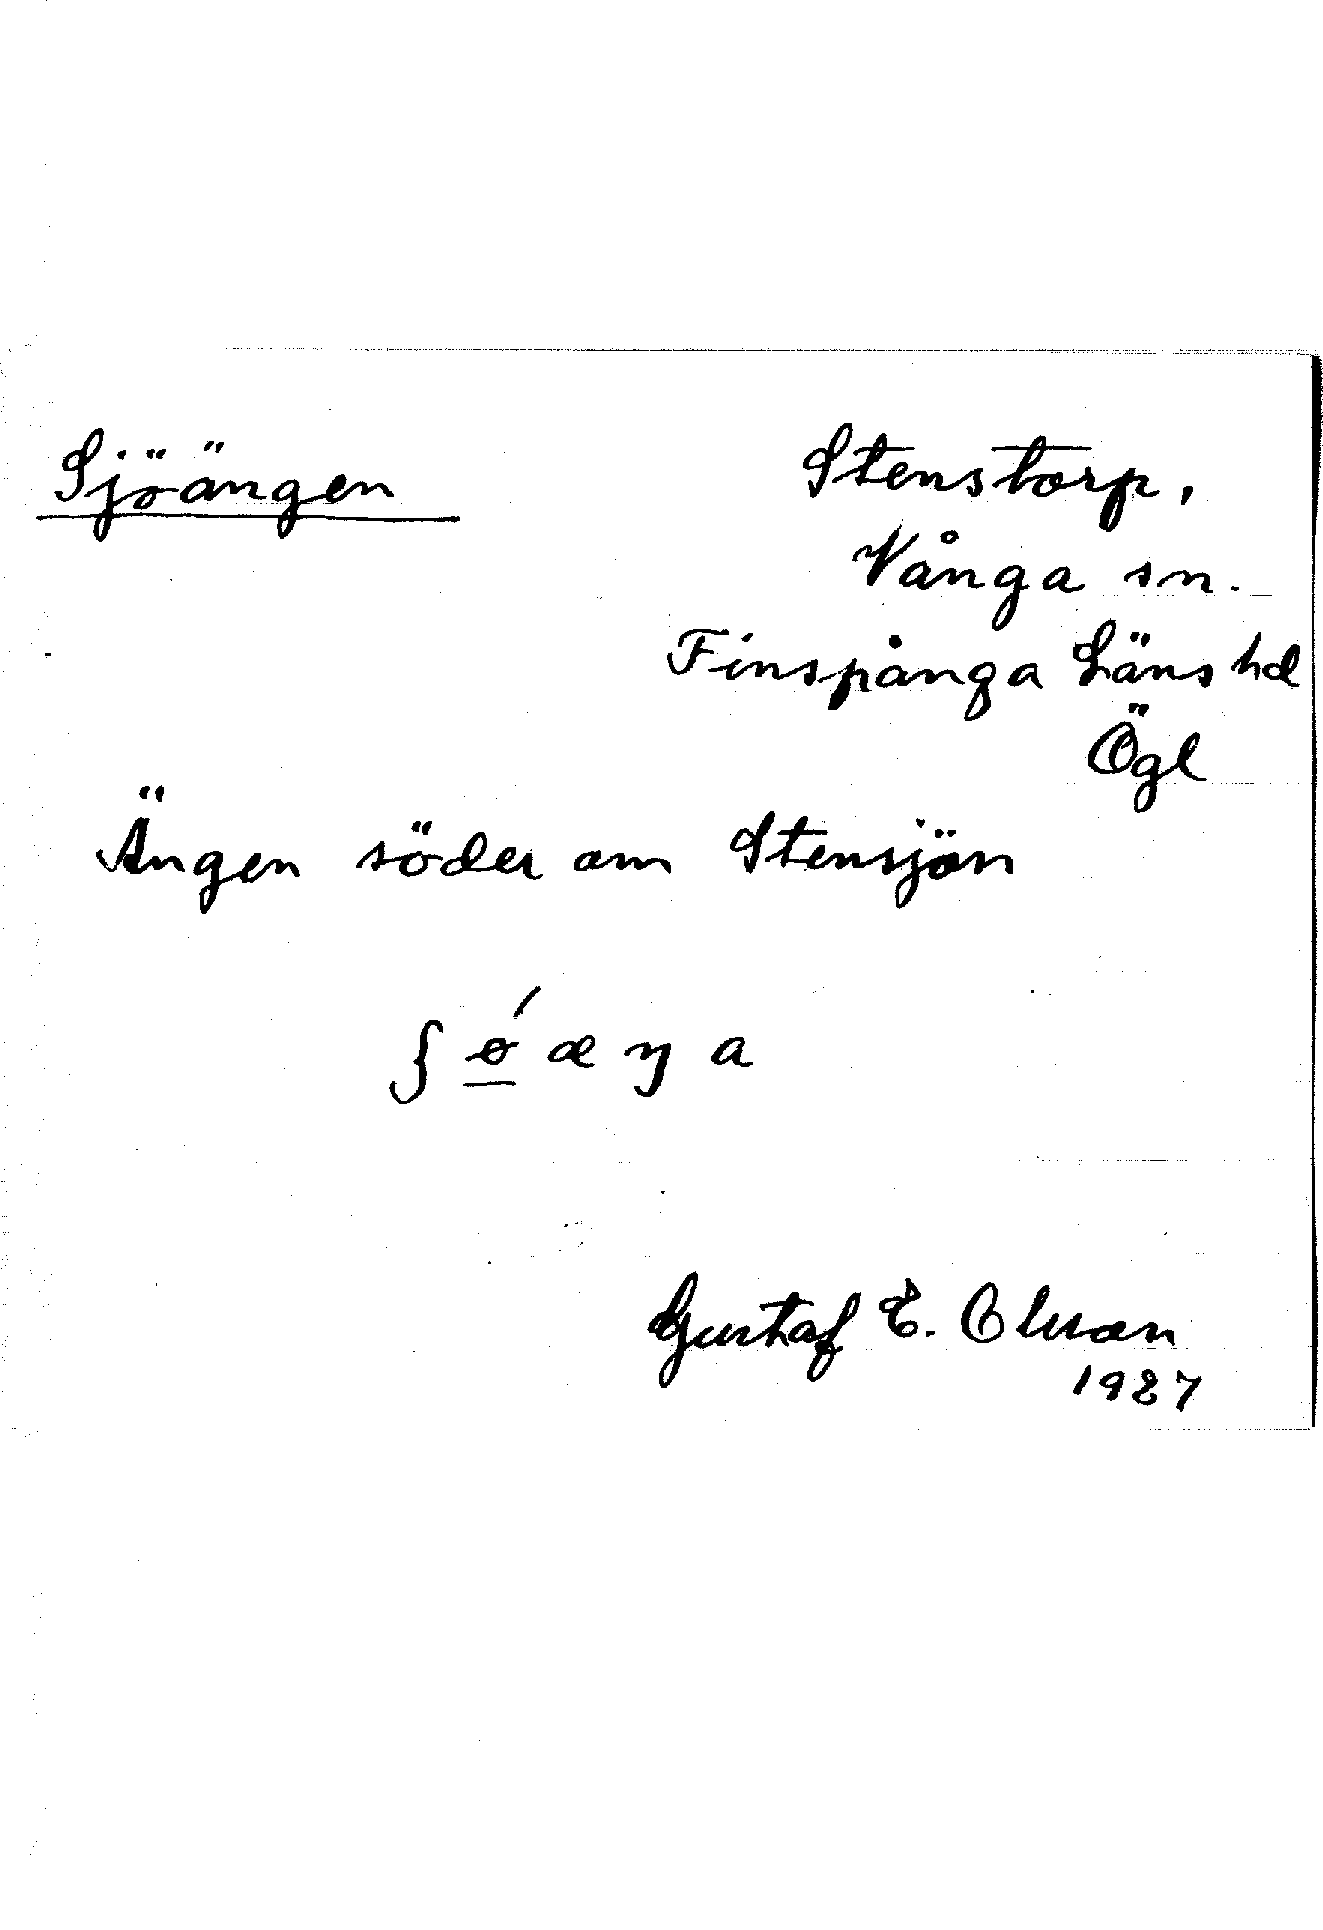 Sjöängen
Stenstorp,
Vånga sn.
Finspånga Läns hd
Ögl
Ängen söder om Stensjön
ʃ ǿ æ ŋ a
Gustaf E. Olsson
1927